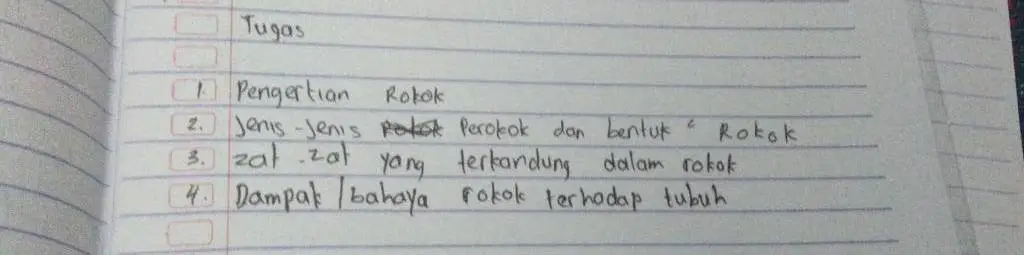 Tugas
1. Pengertian Rokok
2. Jenis-Jenis Perokok dan bentuk" Rokok
3. zat-zat yang terkandung dalam rokok
4. Dampak/bahaya rokok terhadap tubuh